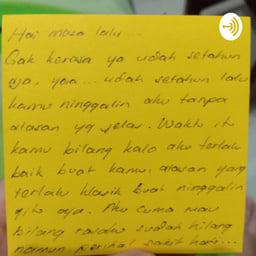 Hai masa lalu...
Gak kerasa ya udah setahun
aja, yaa... udah setahun lalu
kamu ninggalin aku tanpa
alasan yg jelas. Waktu itu
kamu bilang kalo aku terlalu
baik buat kamu, alasan yang
terlalu klasik buat ninggalin
gitu aja. Aku cuma mau
bilang rasaku sudah hilang
namun perihal sakit hati...